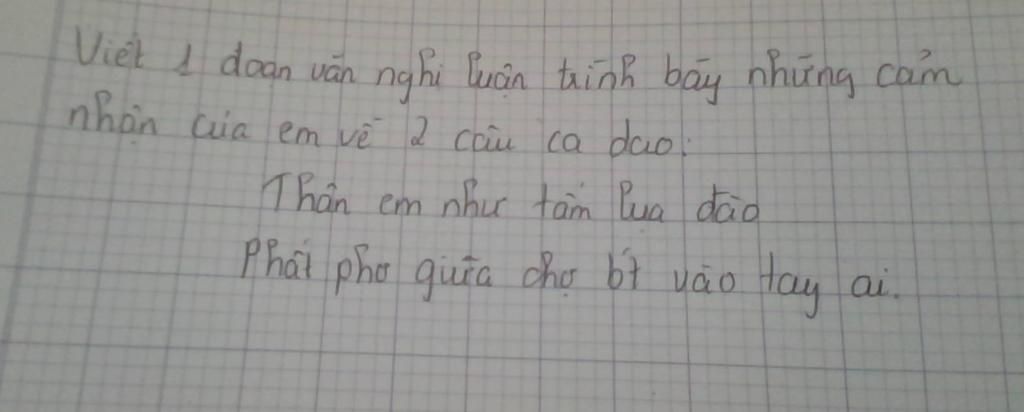 Viết 1 đoạn văn nghị luận trình bày những cảm
nhận của em về 2 câu ca dao:
Thân em như tấm lụa đào
Phất phơ giữa chợ bt vào tay ai.